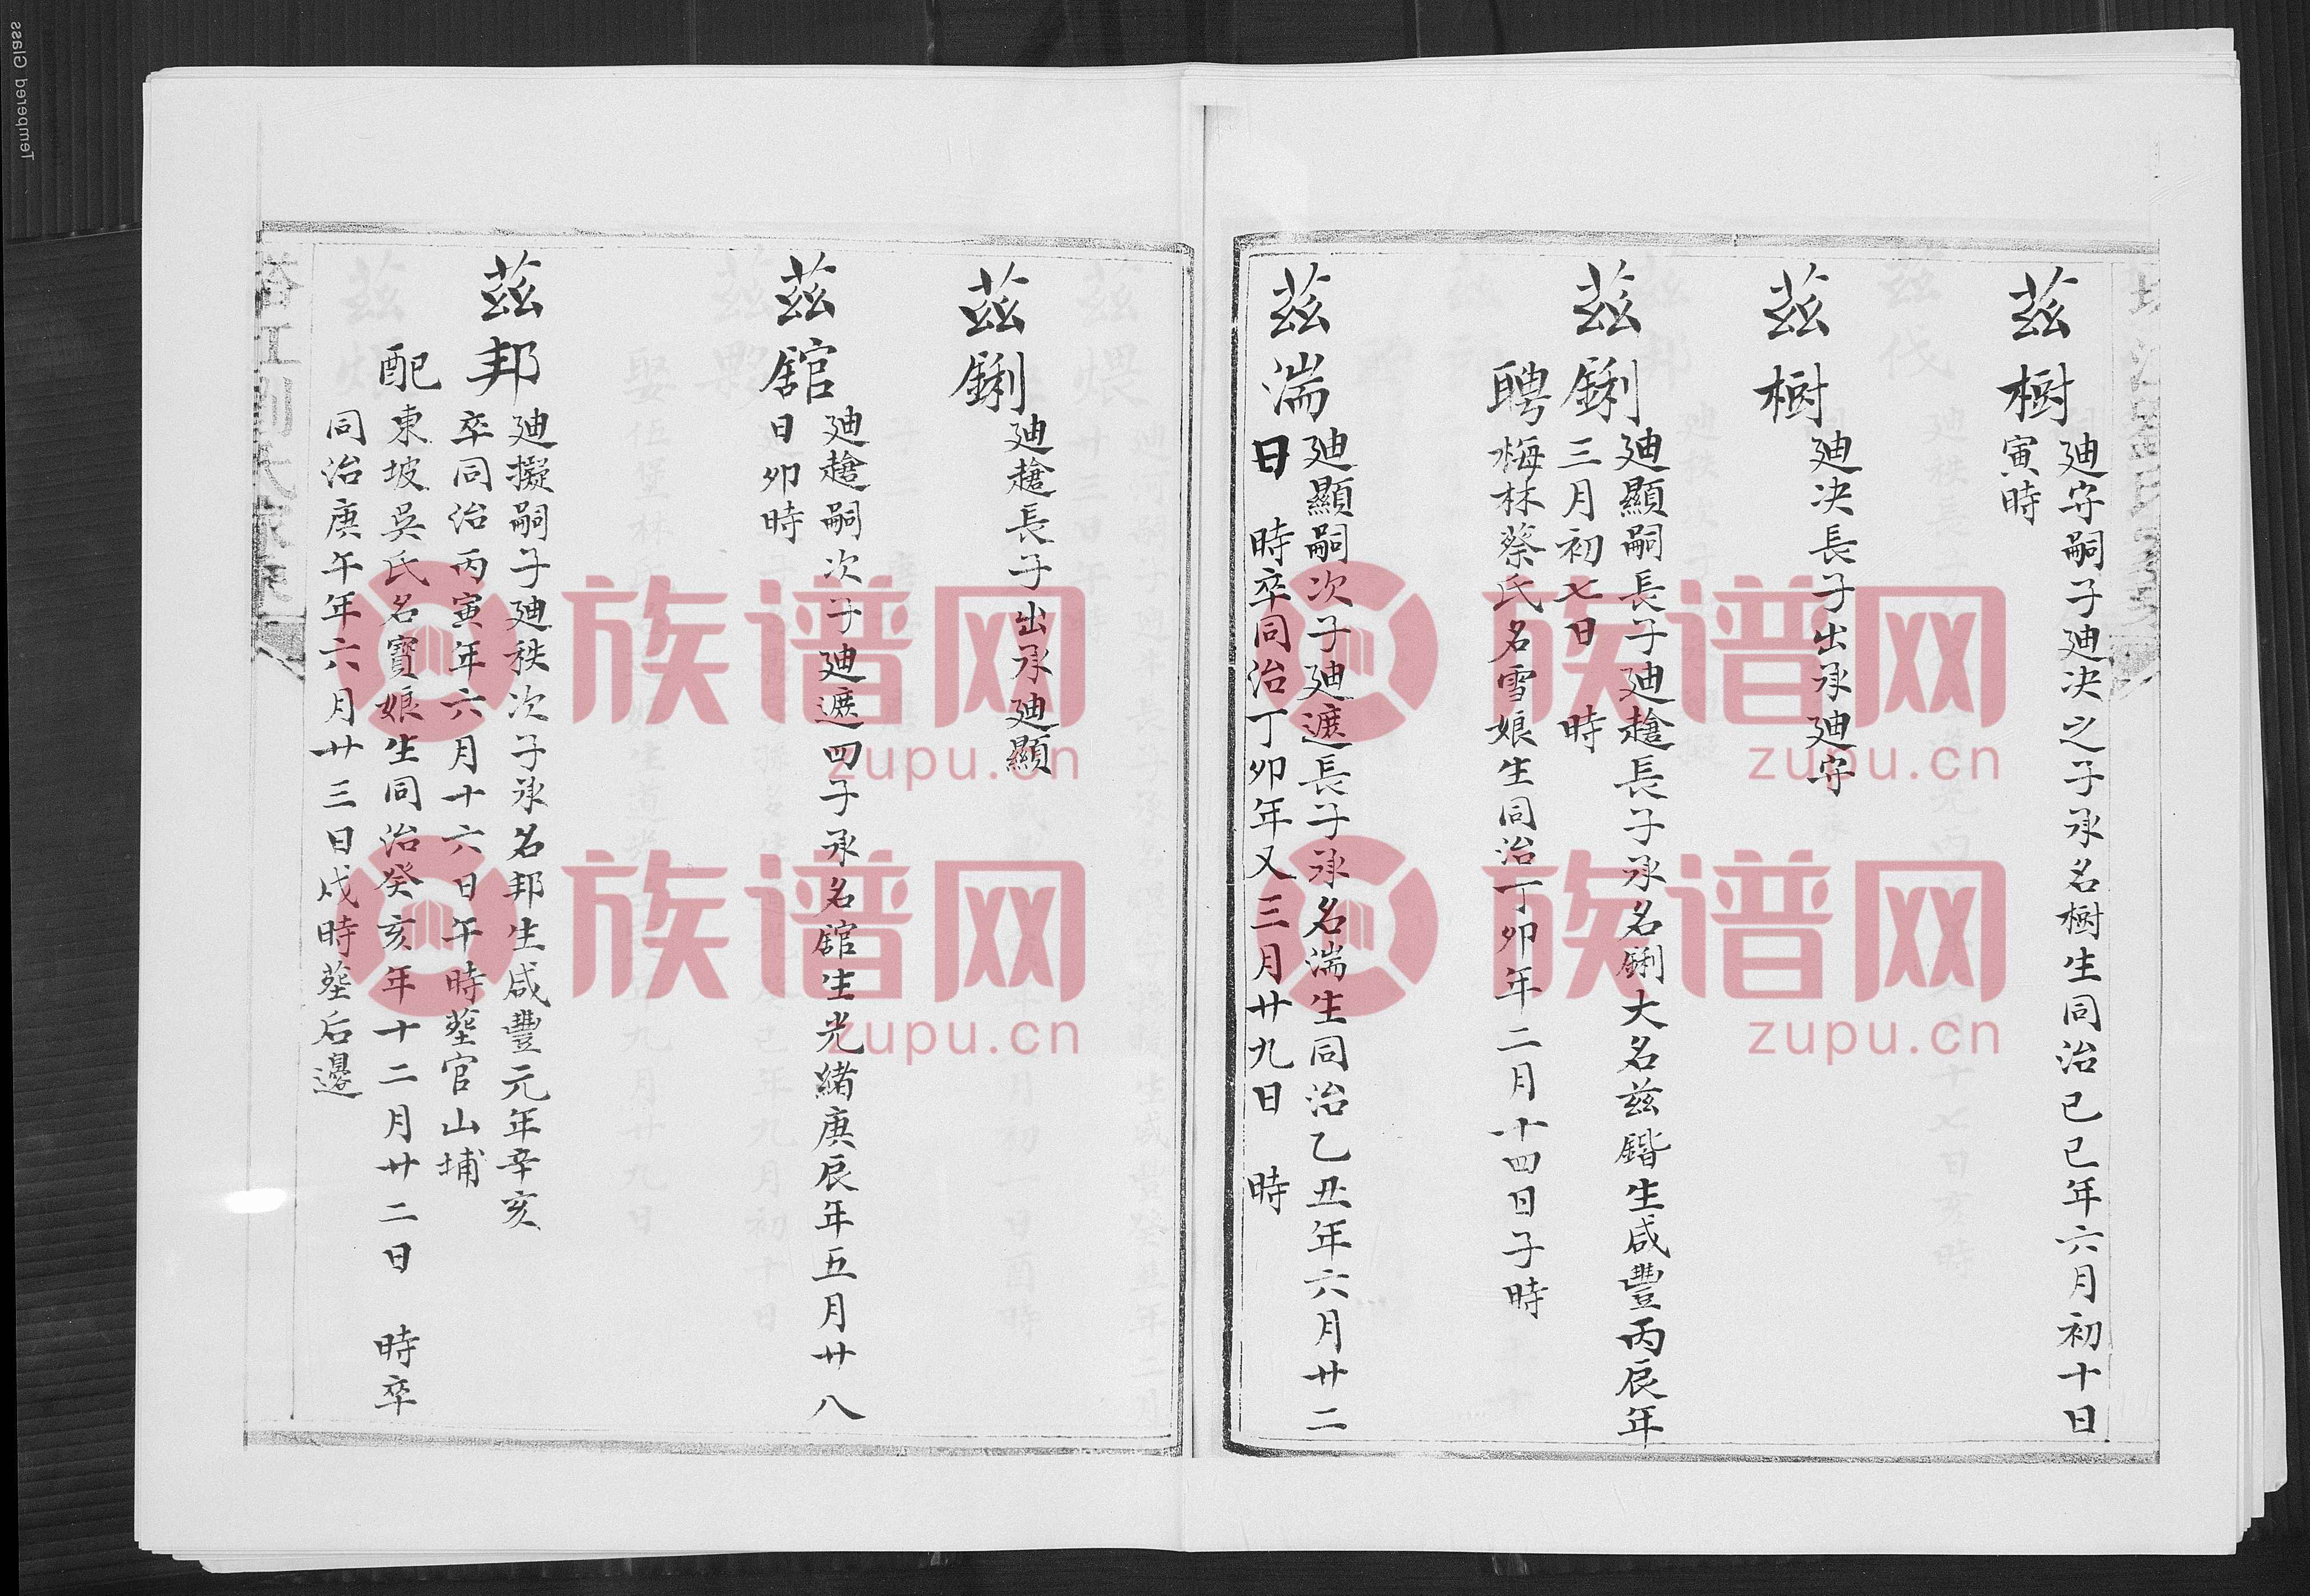 茲樹
廸守嗣子廸决之子承名樹生同治己巳年六月初十日
寅時
茲樹
廸决長子出承廸守
茲鋓
廸顯嗣長子廸艙長子承名鋓大名茲鍇生咸豐丙辰年
三月初七日 時
聘
梅林蔡氏名雪娘生同治丁卯年二月十四日子時
茲湍
廸顯嗣次子廸遮長子承名湍生同治乙丑年六月廿二
日 時卒同治丁卯年又三月廿九日 時
茲鋓
廸艙長子出承廸顯
茲舘
廸艙嗣次子廸遮四子承名舘生光緒庚辰年五月廿八
日卯時
茲邦
廸擬嗣子廸秩次子承名邦生咸豐元年辛亥
卒同治丙寅年六月十六日午時塟官山埔
配
東坡吳氏名寶娘生同治癸亥年十二月廿二日 時卒
同治庚午年六月廿三日戌時塟后邊
族谱网
zupu.cn
族谱网
zupu.cn
族谱网
zupu.cn
族谱网
zupu.cn
Tempered Glass